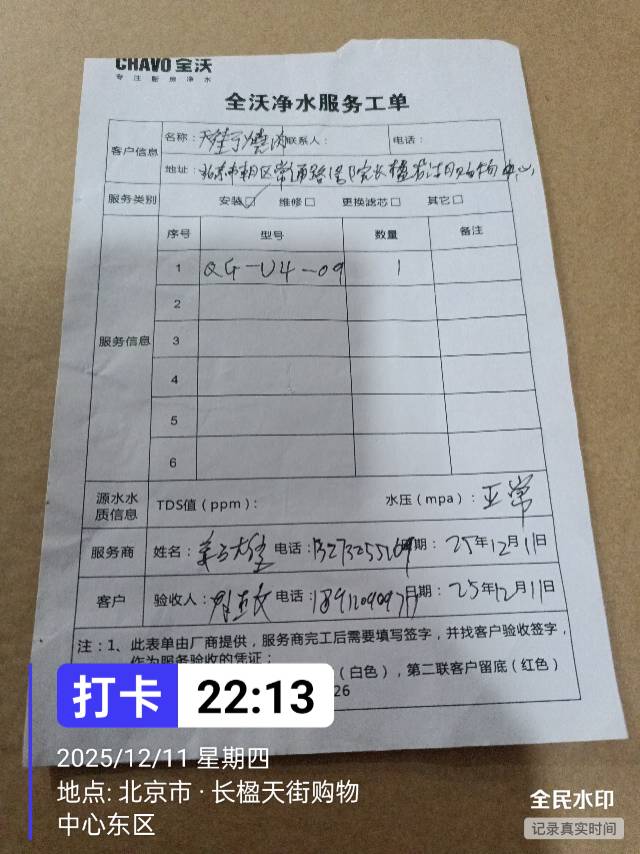 CHAVO 全沃
专注厨房净水
全沃净水服务工单
客户信息
名称: 联系人: 电话:
地址: 北京市朝区常通路 院长楹 中心
服务类别 安装☑ 维修□ 更换滤芯□ 其它□
服务信息
序号 型号 数量 备注
1 QG-U4-09 1
2
3
4
5
6
源水水质信息
TDS值(ppm): 水压(mpa): 正常
服务商 姓名: 电话: 日期: 25年12月11日
客户 验收人: 电话: 日期: 25年12月11日
注:1、此表单由厂商提供,服务商完工后需要填写签字,并找客户验收签字,
作为服务验收的凭证;
(白色),第二联客户留底(红色)
26
打卡 22:13
2025/12/11 星期四
地点: 北京市·长楹天街购物
中心东区
全民水印
记录真实时间